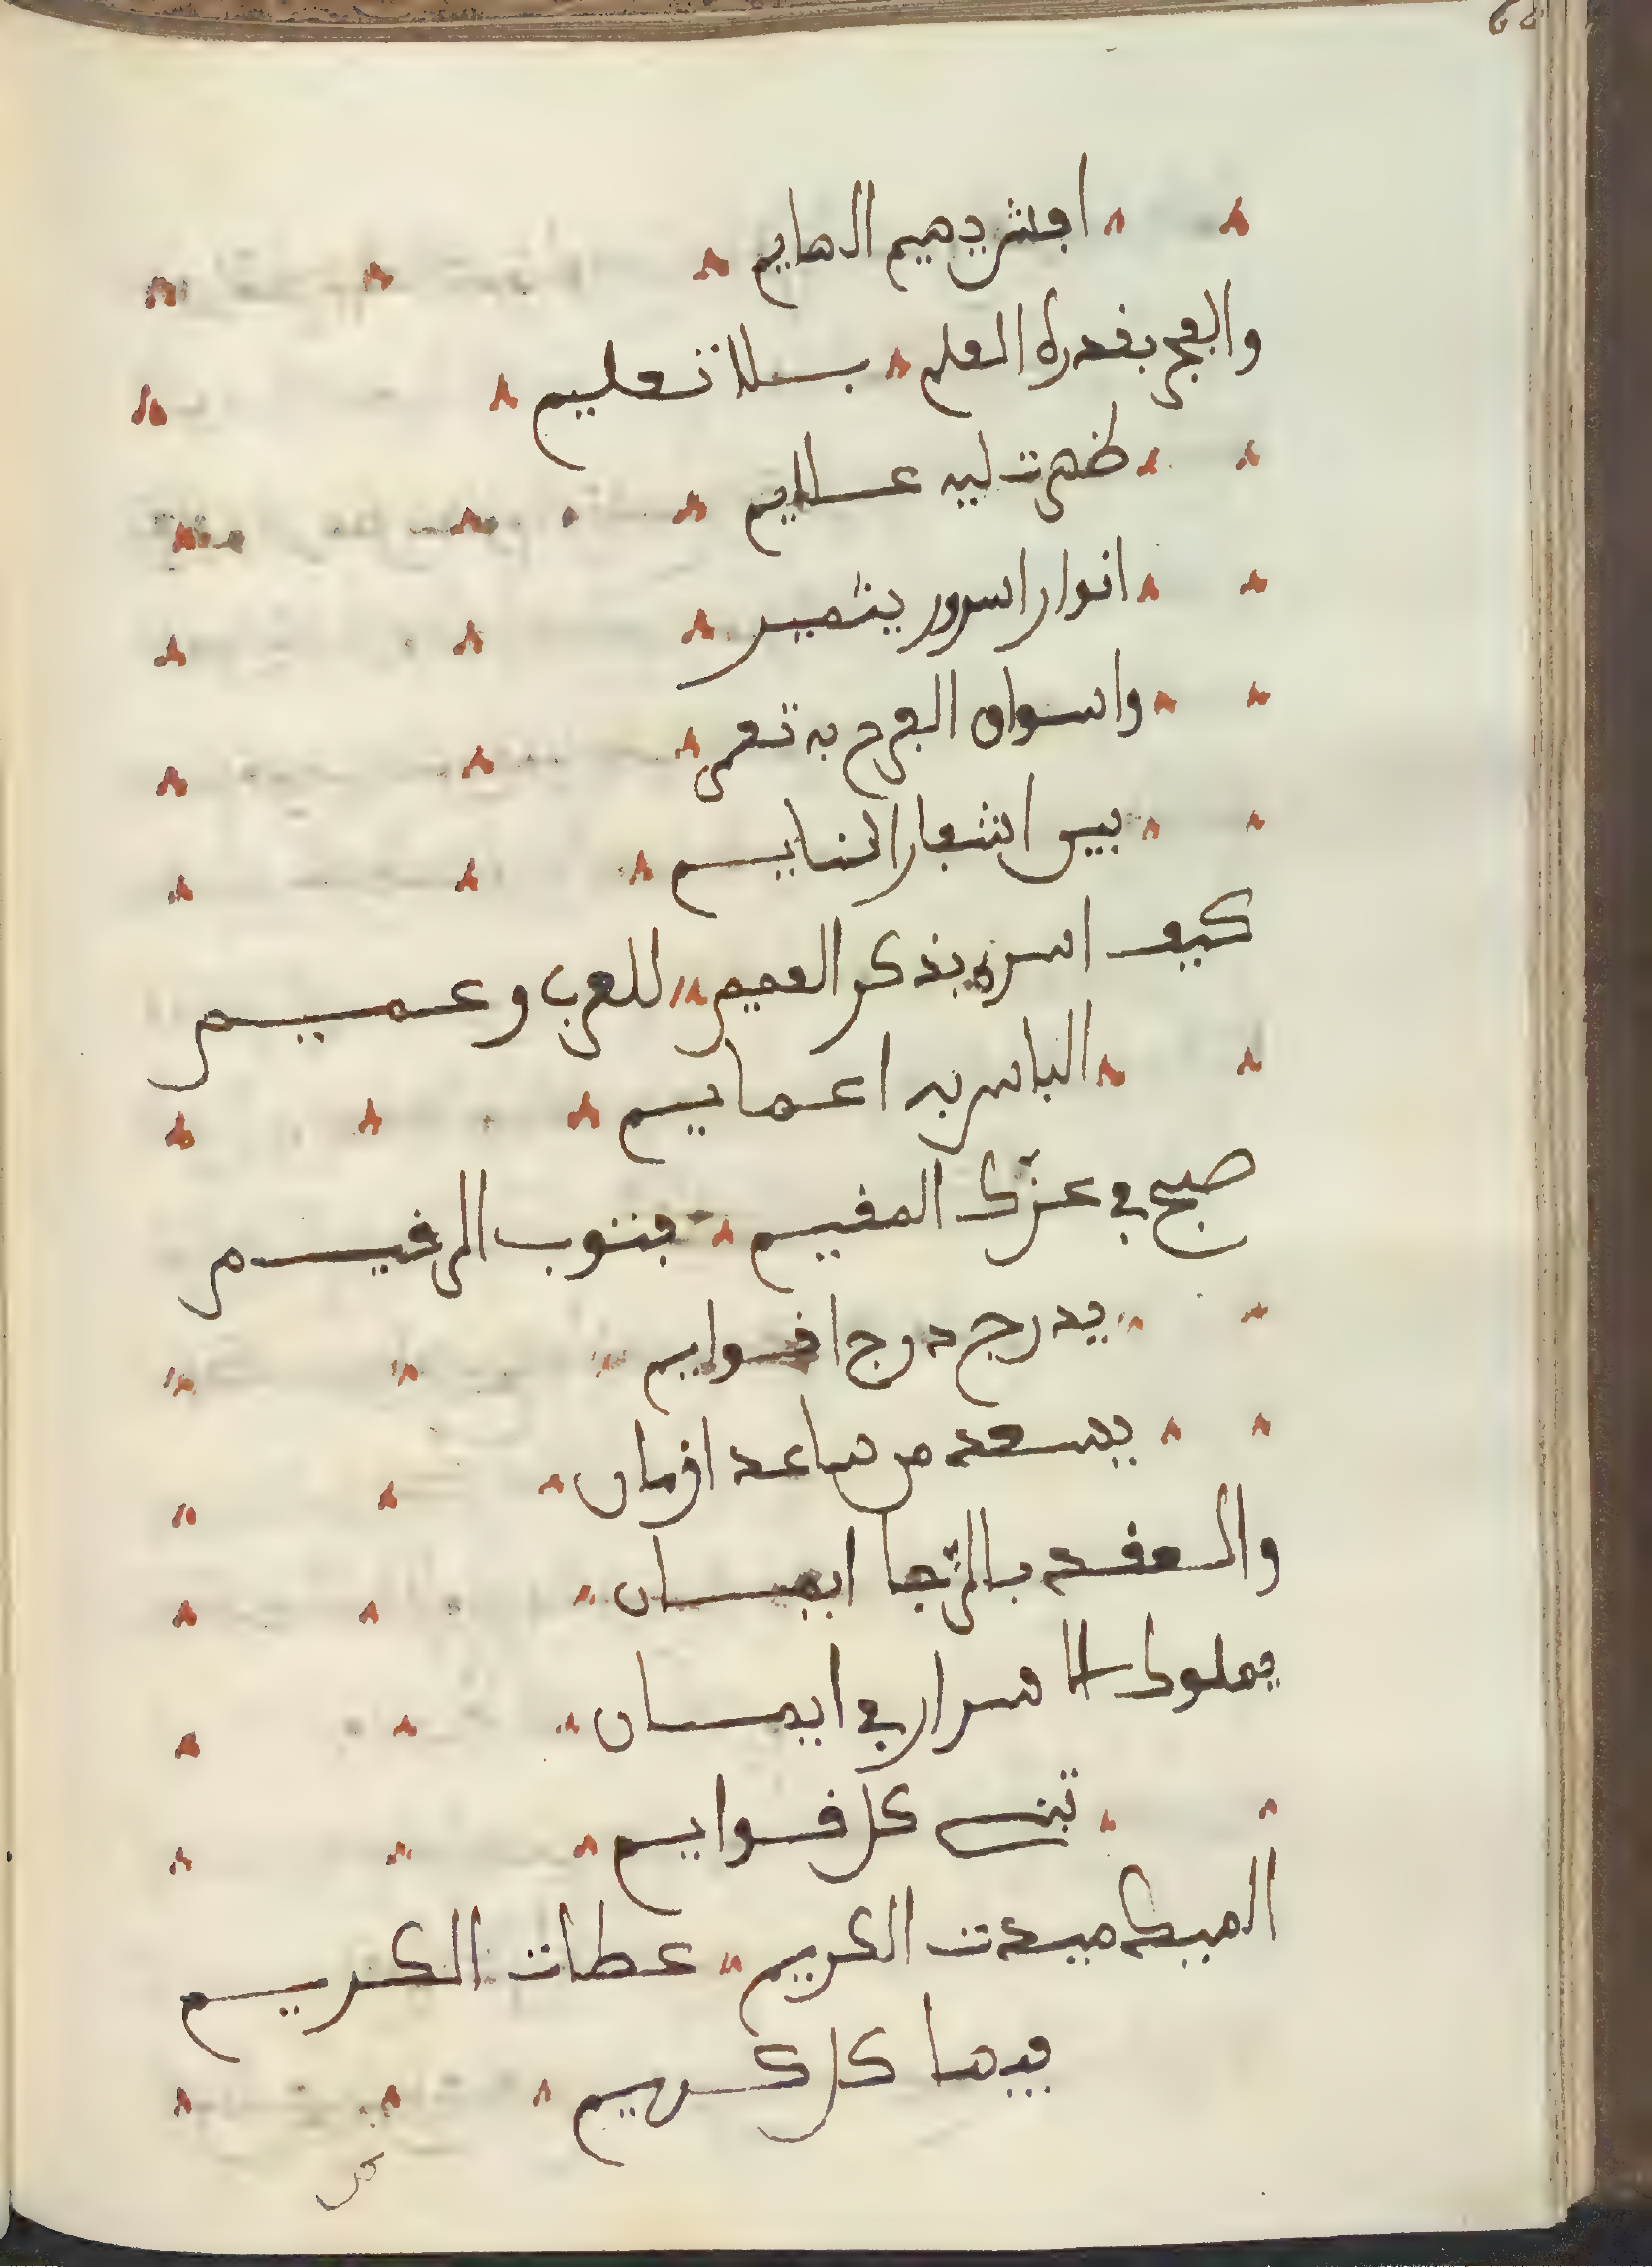 افشريدهيم الهايم
والفجر بقدره العلم بلا تعليم
ظهرت ليه علايم
انوار اسرور يثمير
واسواق الفرح به تعمر
بين اشجار النايم
كيف اسره بذكر العميم للعرب وعميم
الباس به اعمايم
صبح في عزك المقيم بثوب الرقيم
يدرج دوج اقوايم
يسعد من ساعد ازمان
والعقد بالرجا ايمان
يملوك الاسرار في ايمان
تبنى كل قوايم
الميك ميدت الكريم عطات الكريم
فيها كل كريم